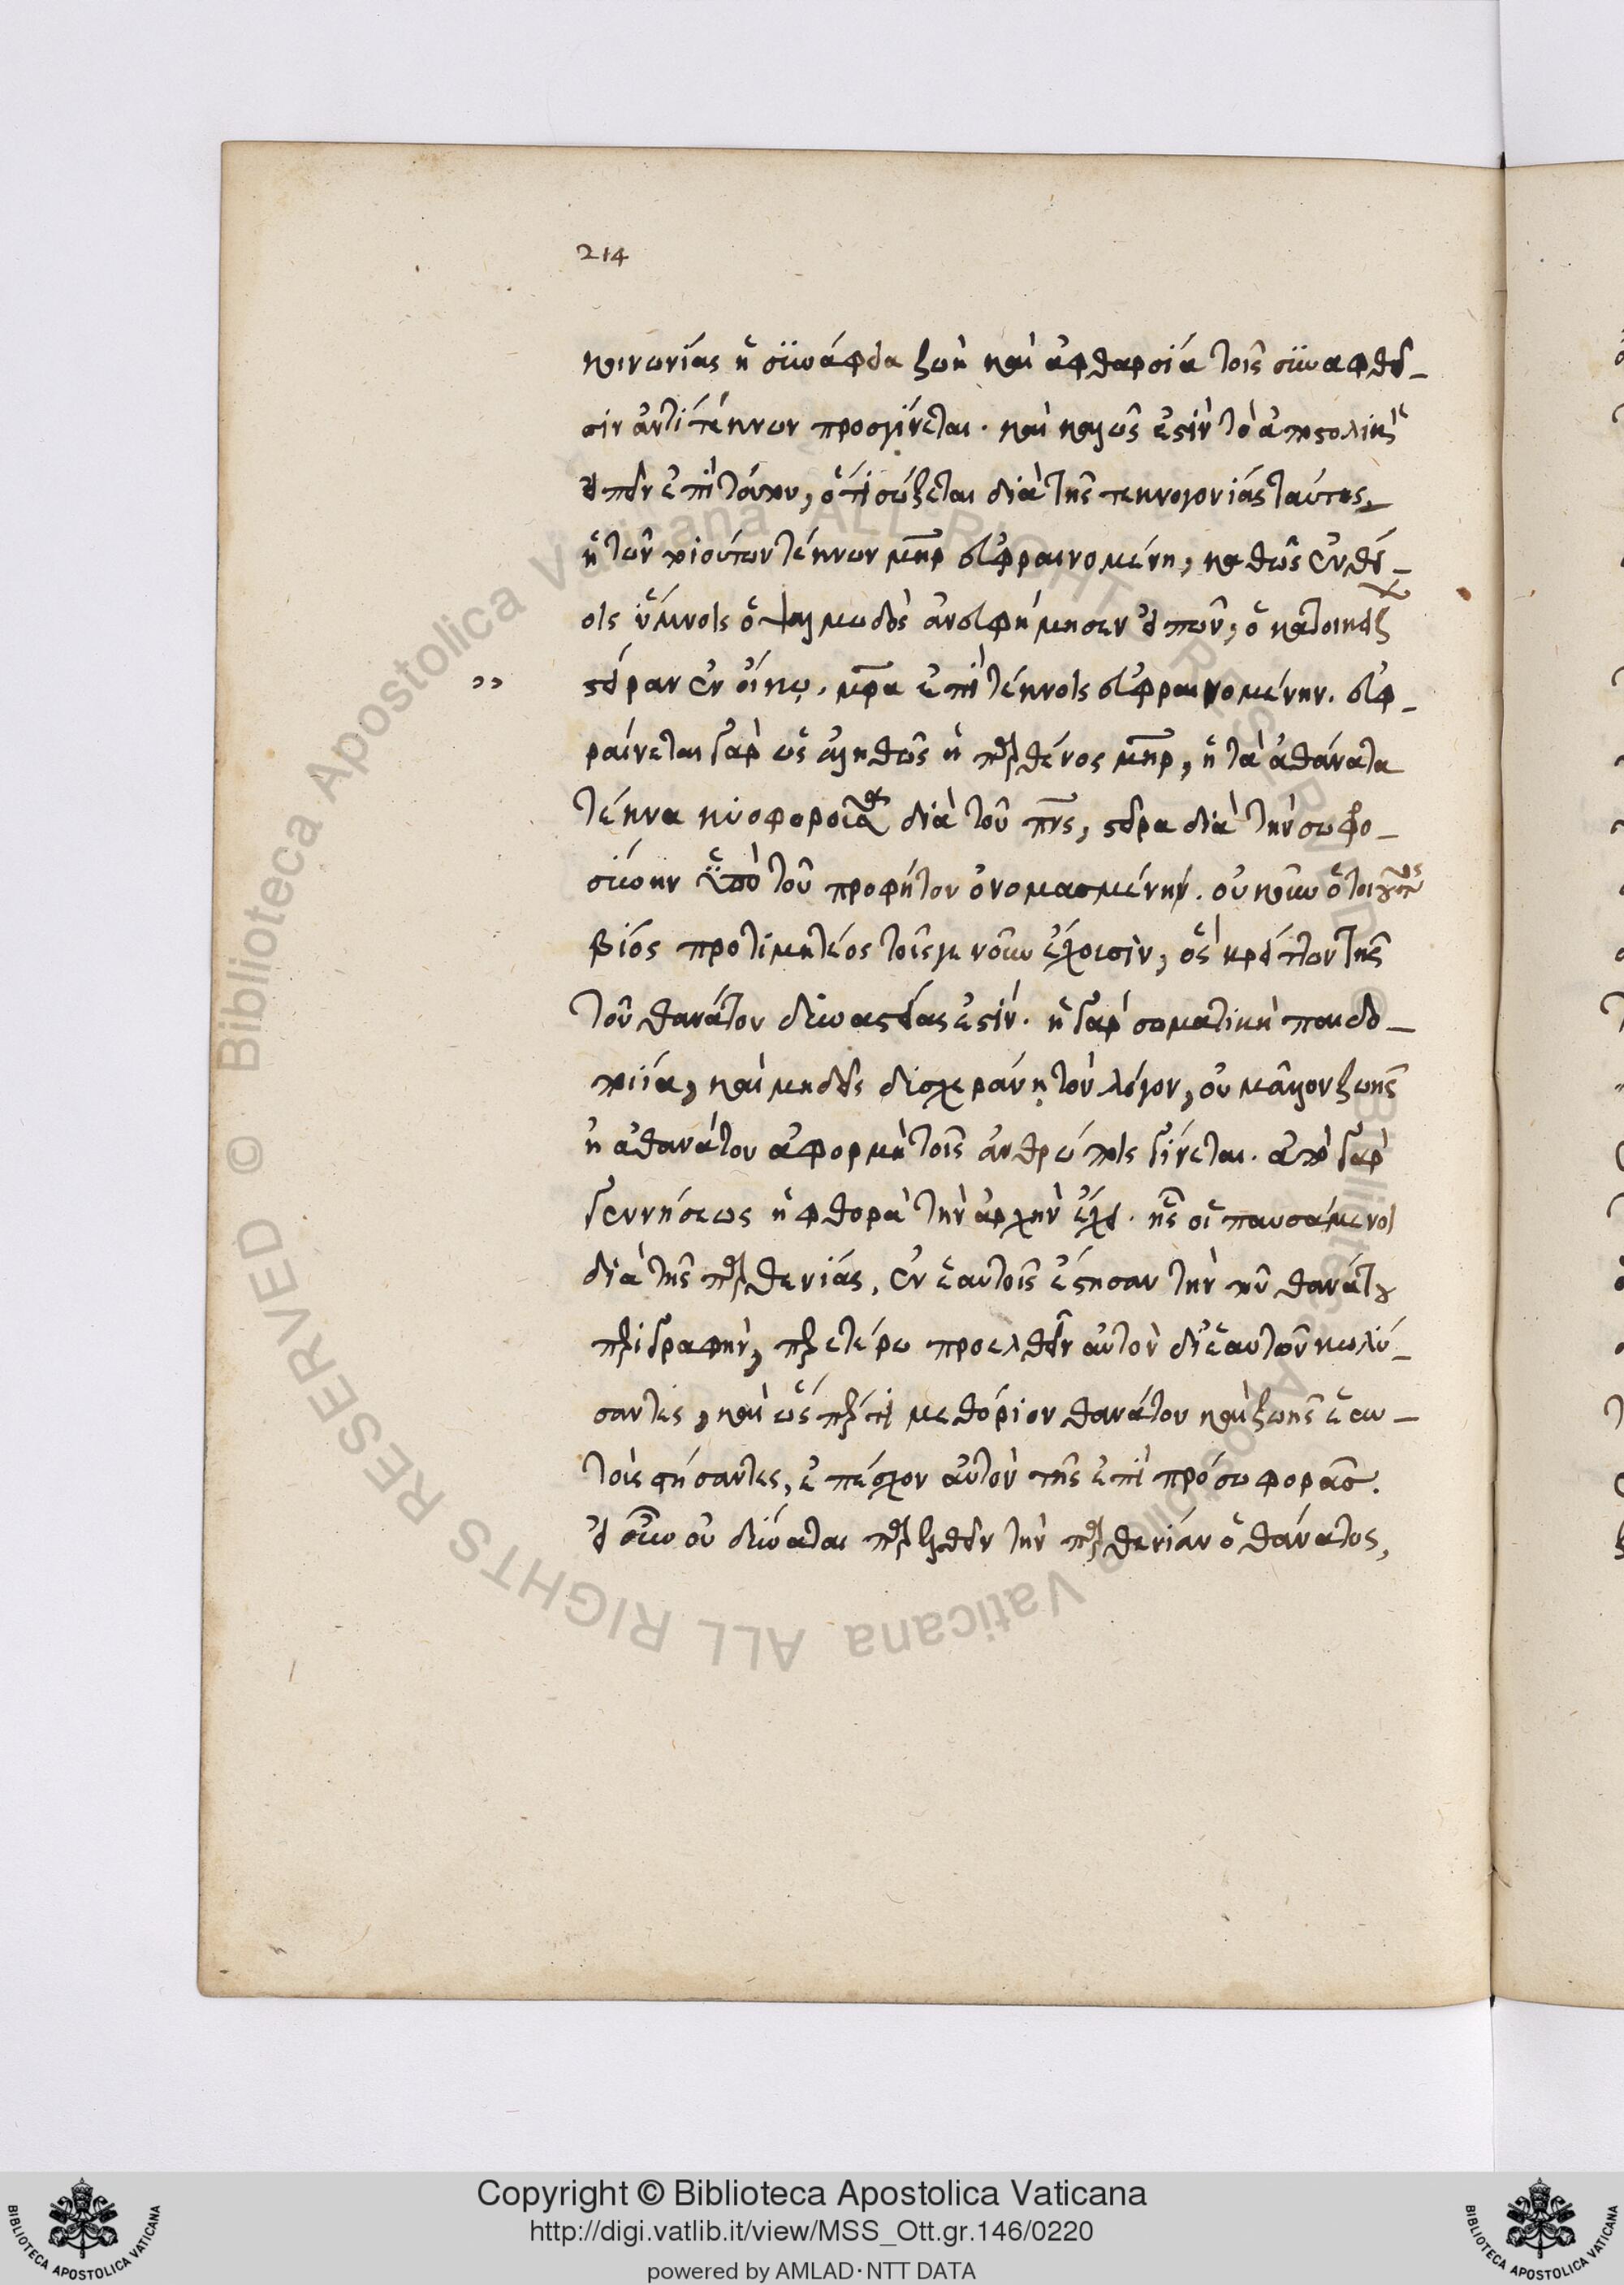 214
κοινωνίας ἡ συνάφεια ζωὴ καὶ ἀφθαρσία τοῖς συναφθεῖ-
σιν ἀντὶ τέκνων προσγίνεται. καὶ καλῶς ἐστὶν τὸ ἀποστολικὸν
εἰπεῖν ἐπὶ τούτου, ὅτι σώζεται διὰ τῆς τεκνογονίας ταύτης,
ἡ τῶν τοιούτων τέκνων μηρ εὐφραινομένη, καθὼς ἐν θεί-
οις ὕμνοις ὁ ψαλμωδὸς ἀνευφήμησεν εἰπών, ὁ κατοικίζων
›› στεῖραν ἐν οἴκῳ. μρα ἐπὶ τέκνοις εὐφραινομένην. εὐφ-
ραίνεται γὰρ ὡς ἀληθῶς ἡ παρθένος μηρ, ἡ τὰ ἀθάνατα
τέκνα κυοφοροῦσα διὰ τοῦ πνς, στεῖρα διὰ τὴν σωφρο-
σύνην ὑπὸ τοῦ προφήτου ὀνομασμένην. οὐκοῦν ὁ τοιοῦτος
βίος προτιμητέος τοῖς γε νοῦν ἔχουσιν, ὃς κρείττων τῆς
τοῦ θανάτου δυναστείας ἐστίν. ἡ γὰρ σωματικὴ παιδο-
ποιία, καὶ μηδεὶς δυσχεράνῃ τὸν λόγον, οὐ μᾶλλον ζωῆς
ἢ ἀθανάτου ἀφορμὴ τοῖς ἀνθρώποις γίνεται. ἀπὸ γὰρ
γεννήσεως ἡ φθορὰ τὴν ἀρχὴν ἔχει. ἧς οἱ παυσάμενοι
διὰ τῆς παρθενίας, ἐν ἑαυτοῖς ἔστησαν τὴν τοῦ θανάτου
περιγραφὴν, περετέρω προελθεῖν αὐτὸν δι' ἑαυτῶν κωλύ-
σαντες, καὶ ὥσπερ τι μεθόριον θανάτου καὶ ζωῆς ἑαυ-
τοὺς στήσαντες, ἐπέσχον αὐτὸν τῆς ἐπὶ πρόσω φορᾶς.
εἰ οὖν οὐ δύναται παρελθεῖν τὴν παρθενίαν ὁ θάνατος,
Copyright © Biblioteca Apostolica Vaticana
http://digi.vatlib.it/view/MSS_Ott.gr.146/0220
powered by AMLAD·NTT DATA